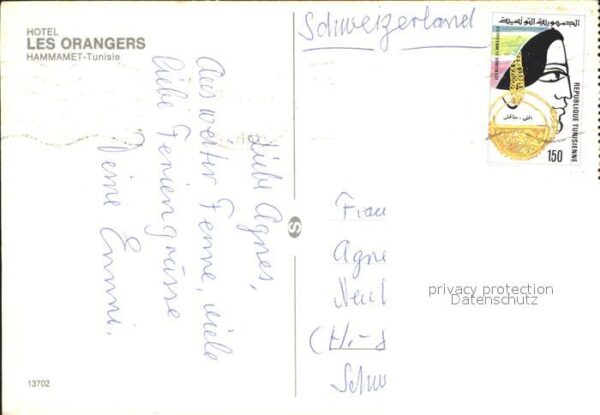 HOTEL
LES ORANGERS
HAMMAMET-Tunisie
Liebe Agnes,
Aus weiter Ferne, viele
liebe Feriengrüsse
Deine Emmi.
13702
S
Schweizerland
الجمهورية التونسية
REPUBLIQUE TUNISIENNE
150
Frau
Agne
Neu
CH.-8
Schw
privacy protection
Datenschutz